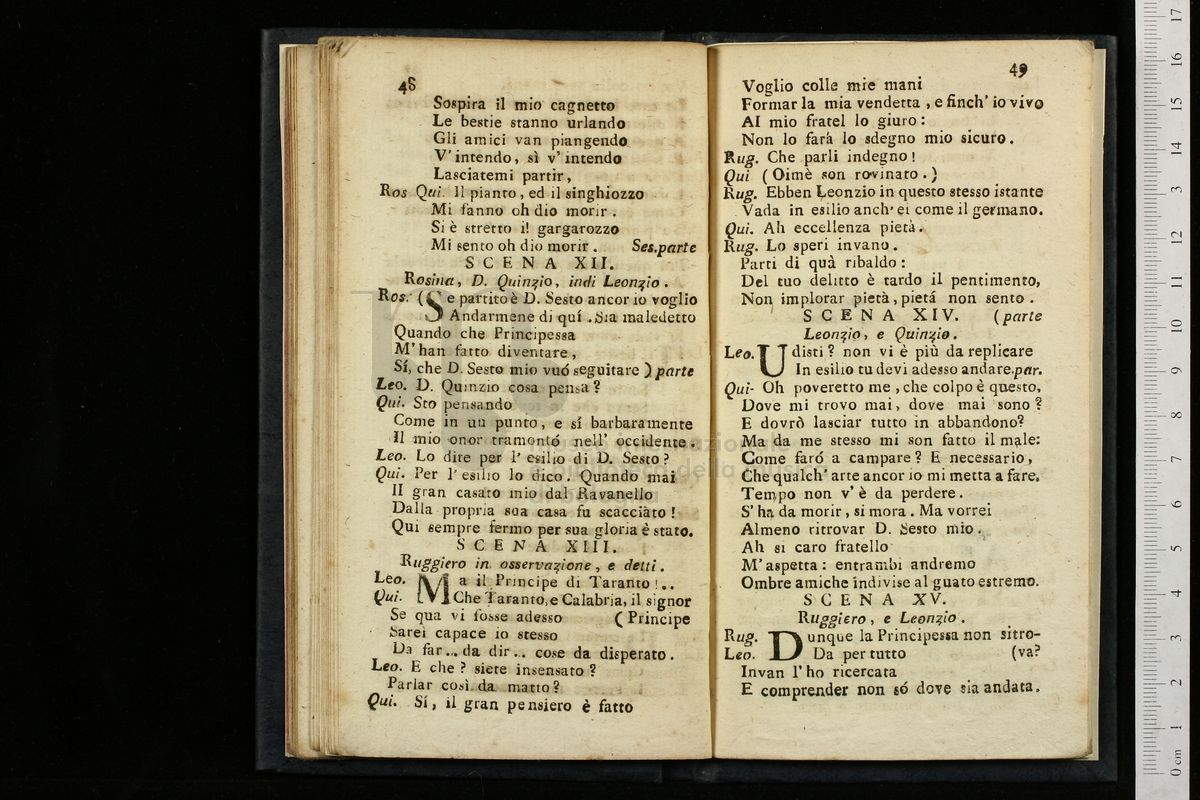 48
Sospira il mio cagnetto
Le bestie stanno urlando
Gli amici van piangendo
V' intendo, sì v' intendo
Lasciatemi partir,
Ros Qui. Il pianto, ed il singhiozzo
Mi fanno oh dio morir.
Si è stretto il gargarozzo
Mi sento oh dio morir. Ses.parte
SCENA XII.
Rosina, D. Quinzio, indi Leonzio.
Ros. (Se partito è D. Sesto ancor io voglio
Andarmene di quí. Sia maledetto
Quando che Principessa
M' han fatto diventare,
Sí, che D. Sesto mio vuó seguitare ) parte
Leo. D. Quinzio cosa pensa?
Qui. Sto pensando
Come in un punto, e sí barbaramente
Il mio onor tramontó nell' occidente.
Leo. Lo dite per l' esilio di D. Sesto?
Qui. Per l' esilio lo dico. Quando mai
Il gran casato mio dal Ravanello
Dalla propria sua casa fu scacciàto!
Qui sempre fermo per sua gloria è stato.
SCENA XIII.
Ruggiero in osservazione, e detti.
Leo. Ma il Principe di Taranto!..
Qui. Che Taranto, e Calabria, il signor
Se qua vi fosse adesso ( Principe
Sarei capace io stesso
Da far... da dir.. cose da disperato.
Leo. E che? siete insensato?
Parlar così da matto?
Qui. Sí, il gran pensiero è fatto
49
Voglio colle mie mani
Formar la mia vendetta, e finch' io vivo
Al mio fratel lo giuro:
Non lo fará lo sdegno mio sicuro.
Rug. Che parli indegno!
Qui ( Oimè son rovinato. )
Rug. Ebben Leonzio in questo stesso istante
Vada in esilio anch' ei come il germano.
Qui. Ah eccellenza pietà.
Rug. Lo speri invano.
Parti di quà ribaldo:
Del tuo delitto è tardo il pentimento,
Non implorar pietà, pietá non sento.
SCENA XIV. (parte
Leonzio, e Quinzio.
Leo. Udisti? non vi è più da replicare
In esilio tu devi adesso andare.par.
Qui- Oh poveretto me, che colpo è questo,
Dove mi trovo mai, dove mai sono?
E dovrò lasciar tutto in abbandono?
Ma da me stesso mi son fatto il male:
Come faró a campare? E necessario,
Che qualch' arte ancor io mi metta a fare.
Tempo non v' è da perdere.
S' ha da morir, si mora. Ma vorrei
Almeno ritrovar D. Sesto mio.
Ah si caro fratello
M' aspetta: entrambi andremo
Ombre amiche indivise al guato estremo.
SCENA XV.
Ruggiero, e Leonzio.
Rug. Dunque la Principessa non sitro-
Leo. Da per tutto (va?
Invan l' ho ricercata
E comprender non só dove sia andata.